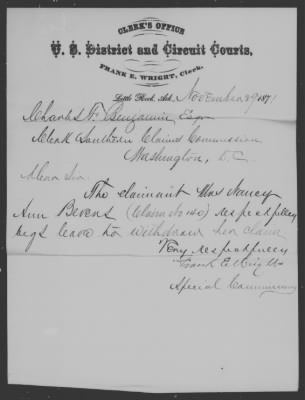 CLERK'S OFFICE
U. S. District and Circuit Courts,
FRANK E. WRIGHT, Clerk.
Little Rock, Ark., November 29 1871
Charles F. Benjamin Esqr
Clerk Southern Claims Commission
Washington, D.C.
Dear Sir.
The claimant Mrs Nancy
Ann Bevens (Claim No 140) respectfully
begs leave to withdraw her claim
Very respectfully
Frank E Wright
Special Commissioner